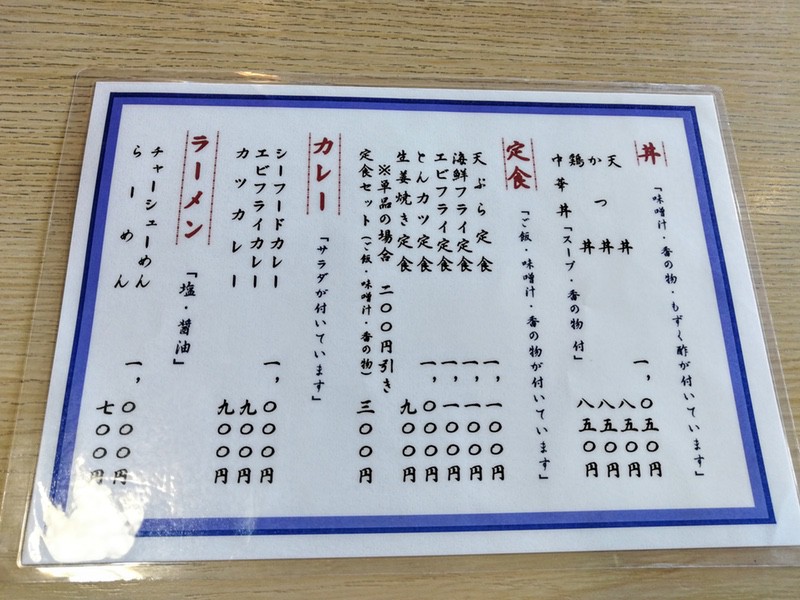 丼 「味噌汁・香の物・もずく酢が付いています」
天丼 一,〇五〇円
かつ丼 八五〇円
鶏丼 八五〇円
中華丼「スープ・香の物付」 八五〇円
定食 「ご飯・味噌汁・香の物が付いています」
天ぷら定食 一,一〇〇円
海鮮フライ定食 一,一〇〇円
エビフライ定食 一,一〇〇円
とんカツ定食 一,〇〇〇円
生姜焼き定食 九〇〇円
※単品の場合 二〇〇円引き
定食セット(ご飯・味噌汁・香の物) 三〇〇円
カレー 「サラダが付いています」
シーフードカレー 一,〇〇〇円
エビフライカレー 九〇〇円
カツカレー 九〇〇円
ラーメン 「塩・醤油」
チャーシューめん 一,〇〇〇円
らーめん 七〇〇円